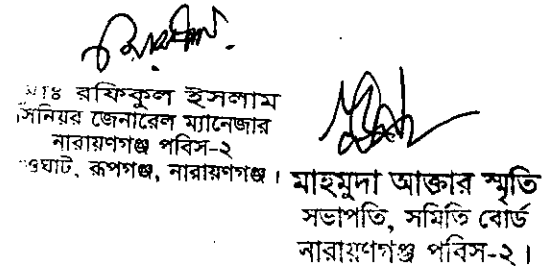 মোঃ রফিকুল ইসলাম
সিনিয়র জেনারেল ম্যানেজার
নারায়ণগঞ্জ পবিস-২
রূপগঞ্জ, নারায়ণগঞ্জ।
মাহমুদা আক্তার স্মৃতি
সভাপতি, সমিতি বোর্ড
নারায়ণগঞ্জ পবিস-২।